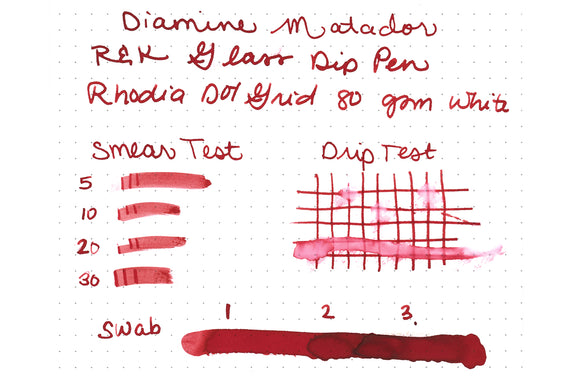 Diamine Matador
R&K Glass Dip Pen
Rhodia Dot Grid 80 gsm White
Smear Test
Drip Test
5
10
20
30
1 2 3.
Swab